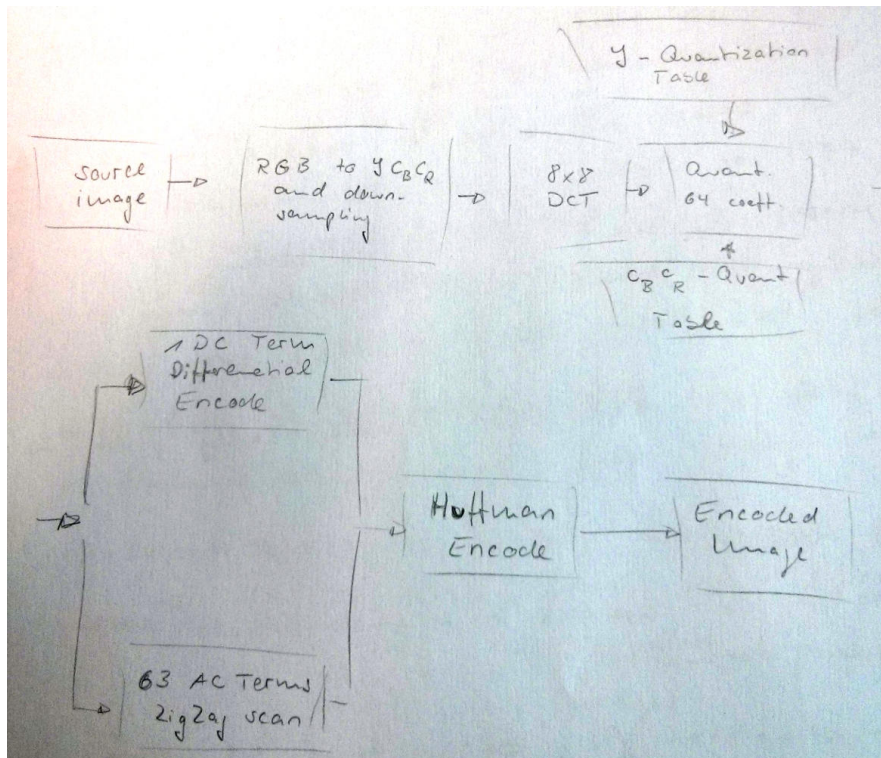 Y - Quantization
Table
source
image
RGB to YCBCR
and down-
sampling
8x8
DCT
Quant.
64 coeff.
CBCR - Quant
Table
1 DC Term
Differential
Encode
Huffman
Encode
Encoded
Image
63 AC Terms
ZigZag scan